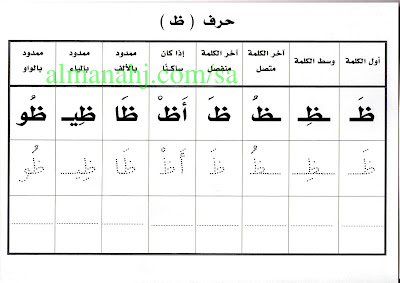 حرف ( ظ )
أول الكلمة وسط الكلمة آخر الكلمة متصل آخر الكلمة منفصل إذا كان ساكنًا ممدود بالألف ممدود بالياء ممدود بالواو
almanahj.com/sa
ظَـ ـظِـ ـظُ ظَ أَظْ ظَا ظِيـ ظُو
ظَـ ـظِـ ـظُ ظَ أَظْ ظَا ظِيـ ظُو